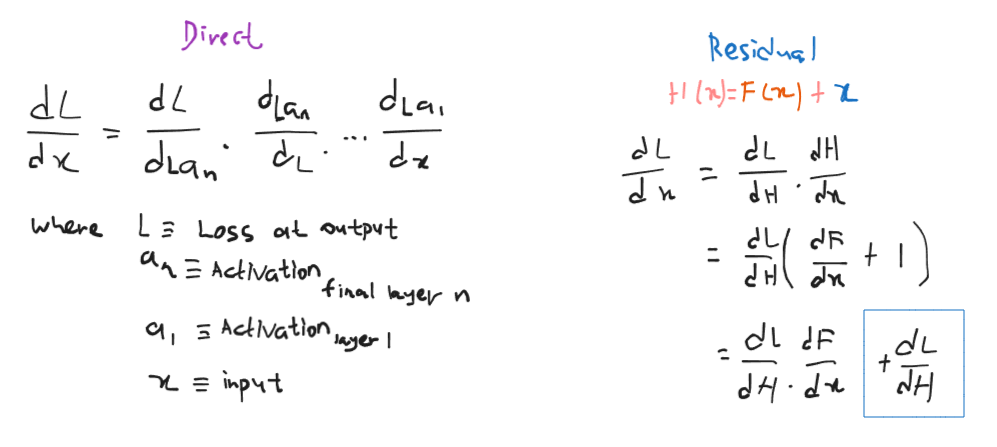 Direct
dL/dx = dL/dLaₙ · dLaₙ/dL · ... dLa₁/dx
where L ≡ Loss at output
aₙ ≡ Activation final layer n
a₁ ≡ Activation layer 1
x ≡ input
Residual
H(x)=F(x)+x
dL/dx = dL/dH · dH/dx
= dL/dH (dF/dx + 1)
= dL/dH · dF/dx + dL/dH